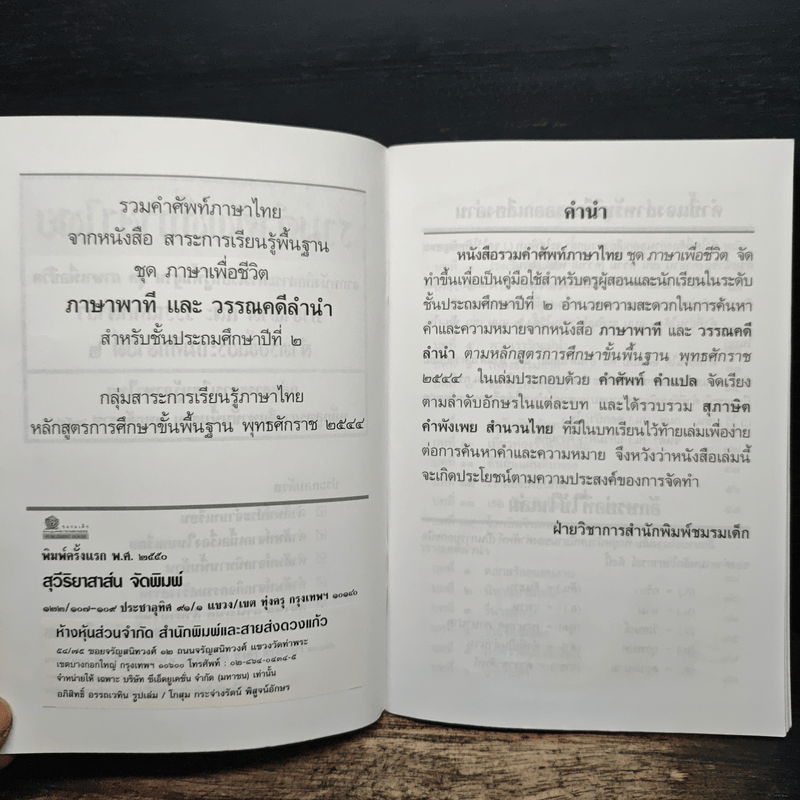 รวมคำศัพท์ภาษาไทย
จากหนังสือ สาระการเรียนรู้พื้นฐาน
ชุด ภาษาเพื่อชีวิต
ภาษาพาที และ วรรณคดีลำนำ
สำหรับชั้นประถมศึกษาปีที่ ๒
กลุ่มสาระการเรียนรู้ภาษาไทย
หลักสูตรการศึกษาขั้นพื้นฐาน พุทธศักราช ๒๕๔๔
ชมรมเด็ก
พิมพ์ครั้งแรก พ.ศ. ๒๕๕๐
สุวีริยาสาส์น จัดพิมพ์
๑๒๒/๑๐๗-๑๐๙ ประชาอุทิศ ๙๑/๑ แขวง/เขต ทุ่งครุ กรุงเทพฯ ๑๐๑๔๐
ห้างหุ้นส่วนจำกัด สำนักพิมพ์และสายส่งดวงแก้ว
๕๔/๗๕ ซอยจรัญสนิทวงศ์ ๑๒ ถนนจรัญสนิทวงศ์ แขวงวัดท่าพระ
เขตบางกอกใหญ่ กรุงเทพฯ ๑๐๖๐๐ โทรศัพท์ : ๐๒-๘๖๔-๐๔๓๔-๕
จำหน่ายให้ เฉพาะ บริษัท ซีเอ็ดยูเคชั่น จำกัด (มหาชน) เท่านั้น
อภิสิทธิ์ อรรถเวทิน รูปเล่ม / โกสุม กระจ่างรัตน์ พิสูจน์อักษร
คำนำ
หนังสือรวมคำศัพท์ภาษาไทย ชุด ภาษาเพื่อชีวิต จัด
ทำขึ้นเพื่อเป็นคู่มือใช้สำหรับครูผู้สอนและนักเรียนในระดับ
ชั้นประถมศึกษาปีที่ ๒ อำนวยความสะดวกในการค้นหา
คำและความหมายจากหนังสือ ภาษาพาที และ วรรณคดี
ลำนำ ตามหลักสูตรการศึกษาขั้นพื้นฐาน พุทธศักราช
๒๕๔๔ ในเล่มประกอบด้วย คำศัพท์ คำแปล จัดเรียง
ตามลำดับอักษรในแต่ละบท และได้รวบรวม สุภาษิต
คำพังเพย สำนวนไทย ที่มีในบทเรียนไว้ท้ายเล่มเพื่อง่าย
ต่อการค้นหาคำและความหมาย จึงหวังว่าหนังสือเล่มนี้
จะเกิดประโยชน์ตามความประสงค์ของการจัดทำ
ฝ่ายวิชาการสำนักพิมพ์ชมรมเด็ก